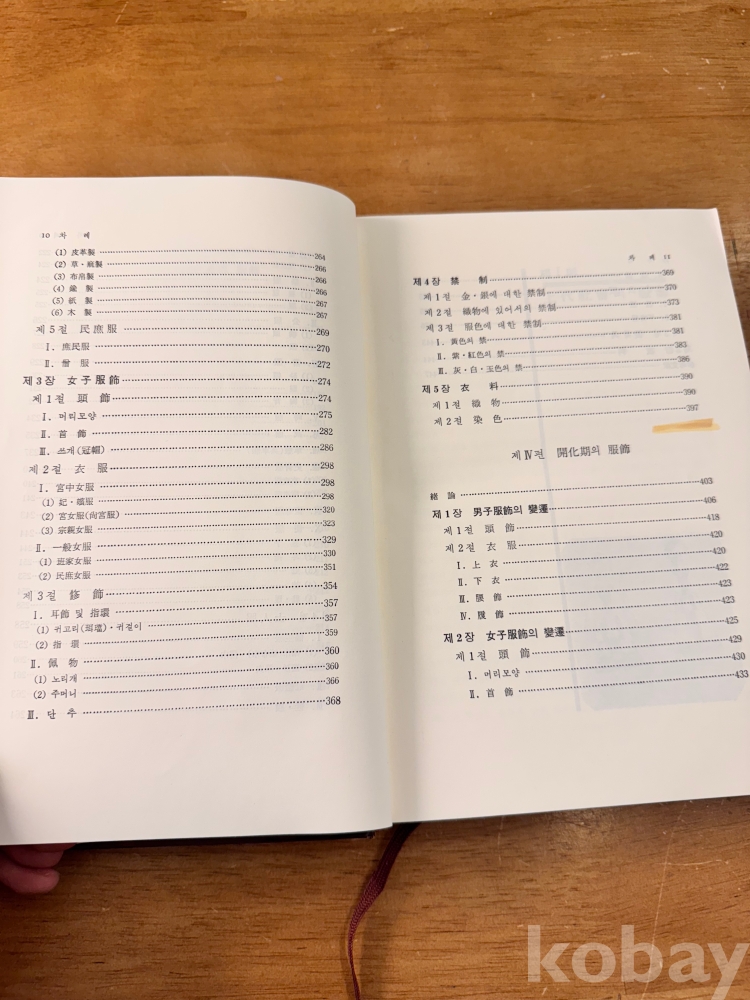 10 차 례
(1) 皮革製 264
(2) 草・麻製 266
(3) 布帛製 266
(4) 鍮 製 266
(5) 紙 製 267
(6) 木 製 267
제5절 民庶服 269
Ⅰ. 庶民服 270
Ⅱ. 僧 服 272
제3장 女子服飾 274
제1절 頭 飾 274
Ⅰ. 머리모양 275
Ⅱ. 首 飾 282
Ⅲ. 쓰개(冠帽) 286
제2절 衣 服 298
Ⅰ. 宮中女服 298
(1) 妃・嬪服 298
(2) 宮女服(尙宮服) 320
(3) 宗親女服 323
Ⅱ. 一般女服 329
(1) 班家女服 330
(2) 民庶女服 351
제3절 修 飾 354
Ⅰ. 耳飾 및 指環 357
(1) 귀고리(珥璫)・귀걸이 357
(2) 指 環 359
Ⅱ. 佩 物 360
(1) 노리개 360
(2) 주머니 366
Ⅲ. 단 추 368
차 례 11
제4장 禁 制 369
제1절 金・銀에 대한 禁制 370
제2절 織物에 있어서의 禁制 373
제3절 服色에 대한 禁制 381
Ⅰ. 黃色의 禁 381
Ⅱ. 紫・紅色의 禁 383
Ⅲ. 灰・白・玉色의 禁 386
제5장 衣 料 390
제1절 織 物 390
제2절 染 色 397
제Ⅳ절 開化期의 服飾
緖 論 403
제1장 男子服飾의 變遷 406
제1절 頭 飾 418
제2절 衣 服 420
Ⅰ. 上 衣 420
Ⅱ. 下 衣 422
Ⅲ. 腰 飾 423
Ⅳ. 飾 423
제2장 女子服飾의 變遷 425
제1절 頭 飾 429
Ⅰ. 머리모양 430
Ⅱ. 首 飾 433
kobay